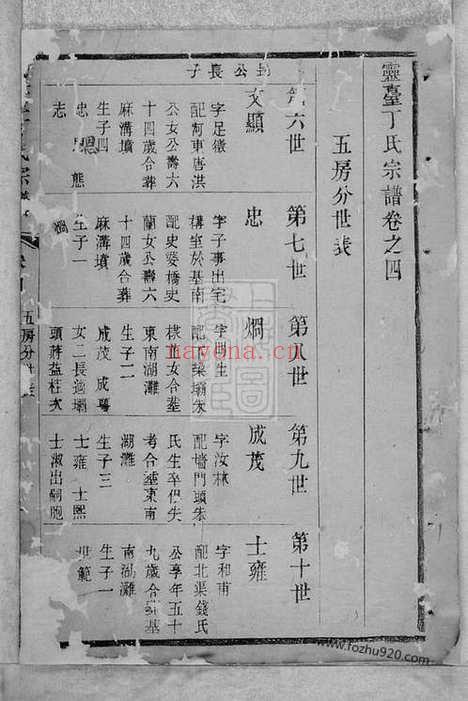 靈臺丁氏宗譜卷之四
五房分世表
第六世
第七世
第八世
第九世
第十世
公長子
文顯
字足徵
配河東唐洪
公女公壽六
十四歲合葬
麻溝墳
生子四
忠 熊
志
忠
字子事出宅
構室於基南
配史婆橋史
蘭女公壽六
十四歲合葬
麻溝墳
生子一
烱
烱
女合墓
東南湖灘
生子二
成茂 成
女二長適
頭蔣益柱次
成茂
字汝林
配墻門頭朱
氏生卒俱失
考合墓東南
湖灘
生子三
士雍 士熙
士淑出嗣胞
士雍
字和甫
配北渠錢氏
公享年五十
九歲合墓
南湖灘
生子一
世範
五房分世表
nayona.cn
www.fozhu920.com